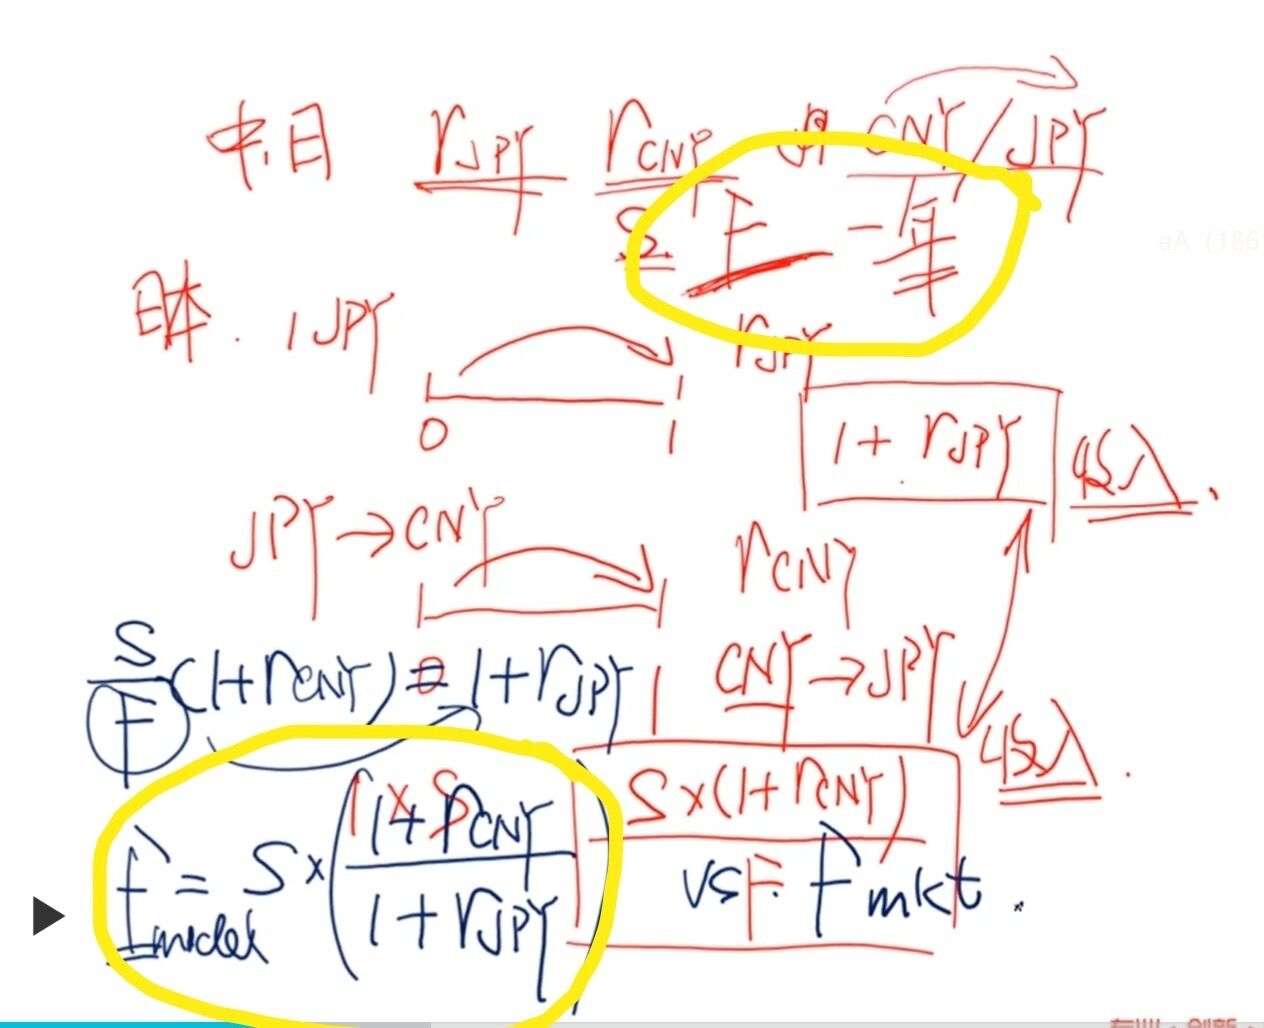 中.日 rJPY rCNY CNY/JPY
S F 一年
日本. 1JPY rJPY
0 1
1+rJPY 收入.
JPY→CNY rCNY
S/F(1+rCNY)=1+rJPY CNY→JPY
1×S S×(1+rCNY) 收入.
F
Fmodel = S×(1+rCNY/1+rJPY) vs Fmkt.